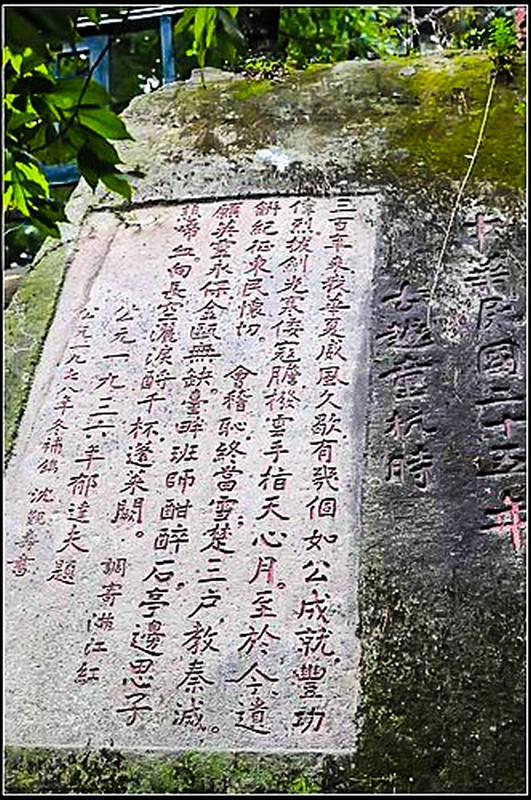 中華民國二十五年
重杭時
三百年來,我華夏威風久歇,有幾個如公成就,豐功
偉烈,拔劍光寒倭寇膽,撥雲手指天心月。至於今遺
餅紀征東民懷切。 會稽恥終當雪;楚三戶,教秦滅。
願英靈永保金甌無缺。臺畔班師酣醉石亭邊思子
悲啼血。向長空灑淚酹千杯蓬萊闕。 調寄滿江紅
公元一九三六年郁達夫題
公元一九七八年冬補鐫 沈覲壽書